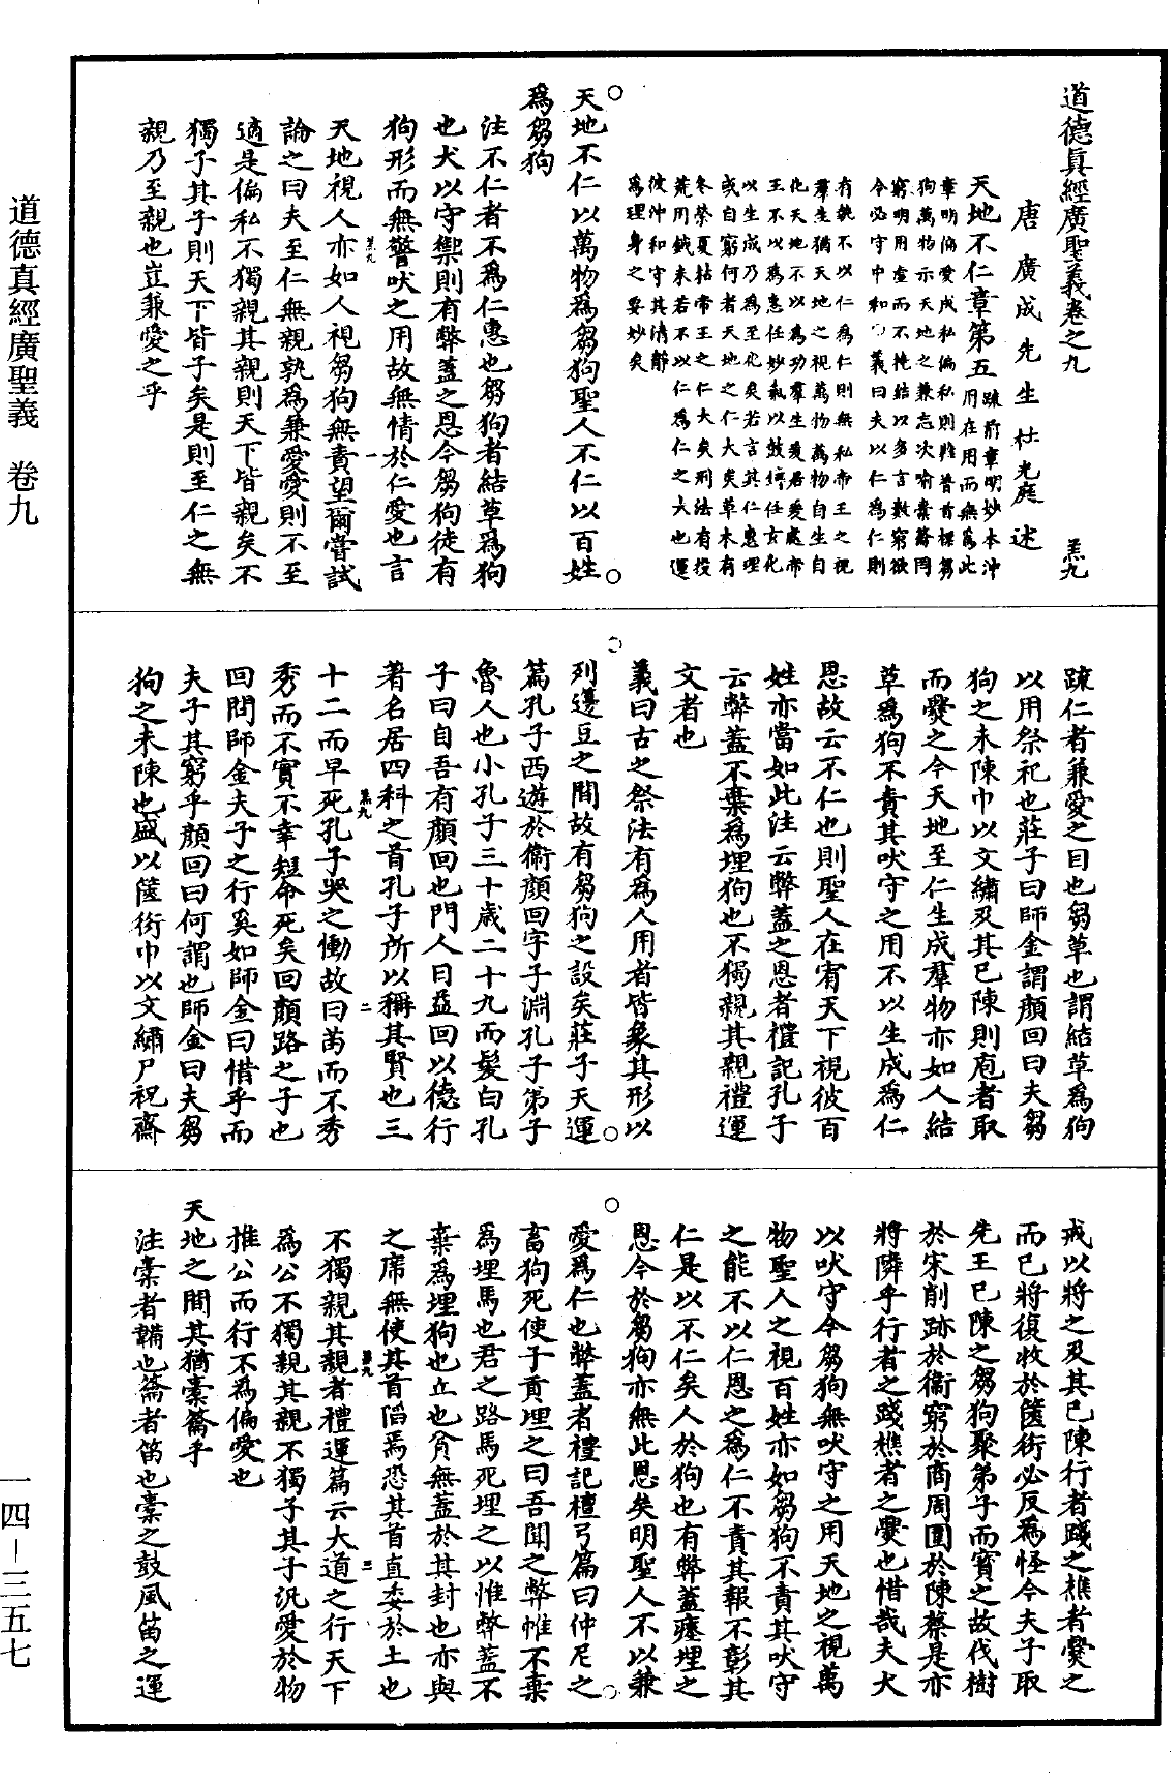 道德真經廣聖義卷之九　羔九
唐廣成先生杜光庭述
天地不仁章第五
疏前章明妙本沖
用在用而無爲此
章明偏愛成私偏私則難普首標芻
狗萬物示天地之兼忘次喻橐籥罔
窮明用虛而不撓結以多言數窮欲
令必守中和○義曰夫以仁爲仁則
有執不以仁爲仁則無私帝王之視
羣生猶天地之視萬物萬物自生自
化天地不以爲功羣生爰居爰處帝
王不以爲惠任妙氣以鼓搏任玄化
以生成乃爲至化矣若言其仁惠理
或自窮何者天地之仁大矣草木有
冬榮夏枯帝王之仁大矣刑法有投
荒用鉞未若不以仁爲仁之大也運
彼沖和守其清靜
爲理身之要妙矣
天地不仁以萬物爲芻狗聖人不仁以百姓
爲芻狗
注不仁者不爲仁惠也芻狗者結草爲狗
也犬以守禦則有弊蓋之恩今芻狗徒有
狗形而無警吠之用故無情於仁愛也言
天地視人亦如人視芻狗無責望爾嘗試
論之曰夫至仁無親孰爲兼愛愛則不至
適是偏私不獨親其親則天下皆親矣不
獨子其子則天下皆子矣是則至仁之無
親乃至親也豈兼愛之乎
疏仁者兼愛之目也芻草也謂結草爲狗
以用祭祀也莊子曰師金謂顏回曰夫芻
狗之未陳巾以文繡及其已陳則庖者取
而爨之今天地至仁生成羣物亦如人結
草爲狗不責其吠守之用不以生成爲仁
恩故云不仁也則聖人在宥天下視彼百
姓亦當如此注云弊蓋之恩者禮記孔子
云弊蓋不棄爲埋狗也不獨親其親禮運
文者也
義曰古之祭法有爲人用者皆象其形以
列邊豆之間故有芻狗之設矣莊子天運
篇孔子西遊於衞顏回字子淵孔子弟子
魯人也小孔子三十歲二十九而髮白孔
子曰自吾有顏回也門人日益回以德行
著名居四科之首孔子所以稱其賢也三
十二而早死孔子哭之慟故曰苗而不秀
秀而不實不幸短命死矣回顏路之子也
回問師金夫子之行奚如師金曰惜乎而
夫子其窮乎顏回曰何謂也師金曰夫芻
狗之未陳也盛以篋衍巾以文繡尸祝齋
戒以將之及其已陳行者踐之樵者爨之
而已將復收於篋衍必反爲怪今夫子取
先王已陳之芻狗聚弟子而寶之故伐樹
於宋削跡於衞窮於商周圍於陳蔡是亦
將隣乎行者之踐樵者之爨也惜哉夫犬
以吠守今芻狗無吠守之用天地之視萬
物聖人之視百姓亦如芻狗不責其吠守
之能不以仁恩之爲仁不責其報不彰其
仁是以不仁矣人於狗也有弊蓋瘞埋之
恩今於芻狗亦無此恩矣明聖人不以兼
愛爲仁也弊蓋者禮記檀弓篇曰仲尼之
畜狗死使子貢埋之曰吾聞之弊帷不棄
爲埋馬也君之路馬死埋之以惟弊蓋不
棄爲埋狗也丘也貧無蓋於其封也亦與
之席無使其首䧟焉恐其首直委於土也
不獨親其親者禮運篇云大道之行天下
爲公不獨親其親不獨子其子汎愛於物
推公而行不爲偏愛也
天地之間其猶橐籥乎
注橐者鞴也籥者笛也橐之鼓風笛之運
羔九　一
羔九　二
羔九　三
道德真經廣聖義　卷九
一四－三五七